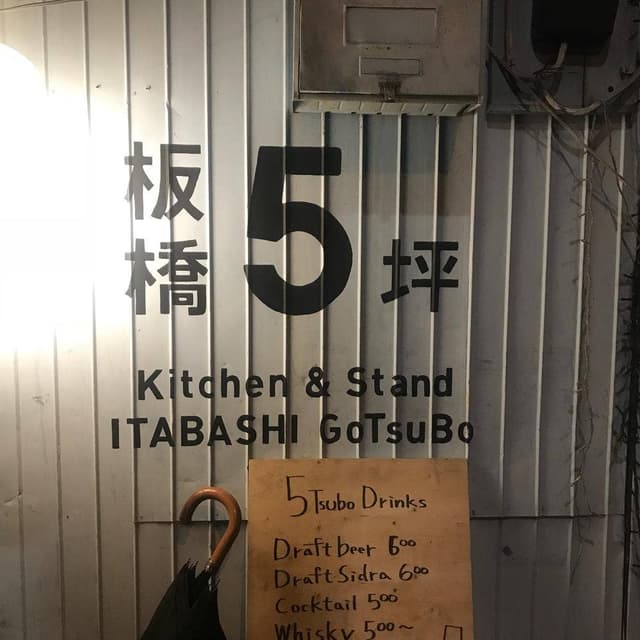 板橋5坪
Kitchen & Stand
ITABASHI GoTsuBo
5 Tsubo Drinks
Draft beer 600
Draft Sidra 600
Cocktail 500
Whisky 500~